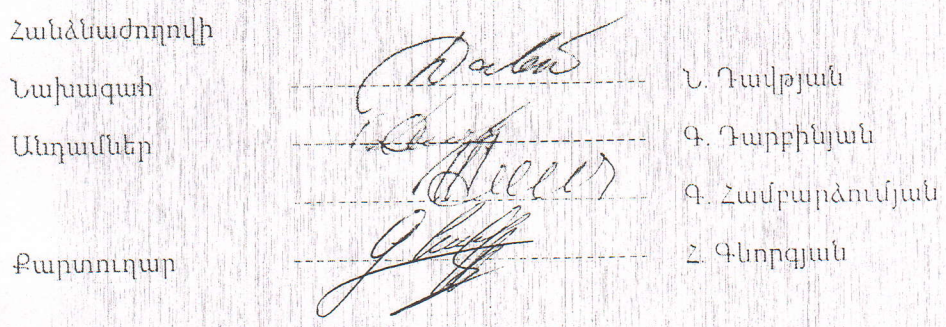 Հանձնաժողովի
Նախագահ Ն. Դավթյան
Անդամներ Գ. Դարբինյան
Գ. Համբարձումյան
Քարտուղար Հ. Գևորգյան